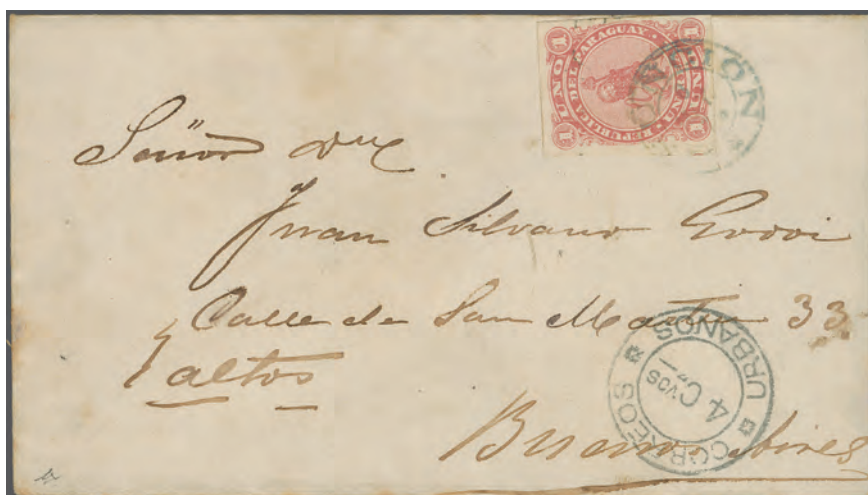 1 UNO 1
REPUBLICA DEL PARAGUAY
UN REAL
1 UNO 1
ASUNCION
Señor Dn
Juan Silvano Godoi
Calle de San Martin 33
altos
CORREOS URBANOS
4 Cvos
Buenos Aires